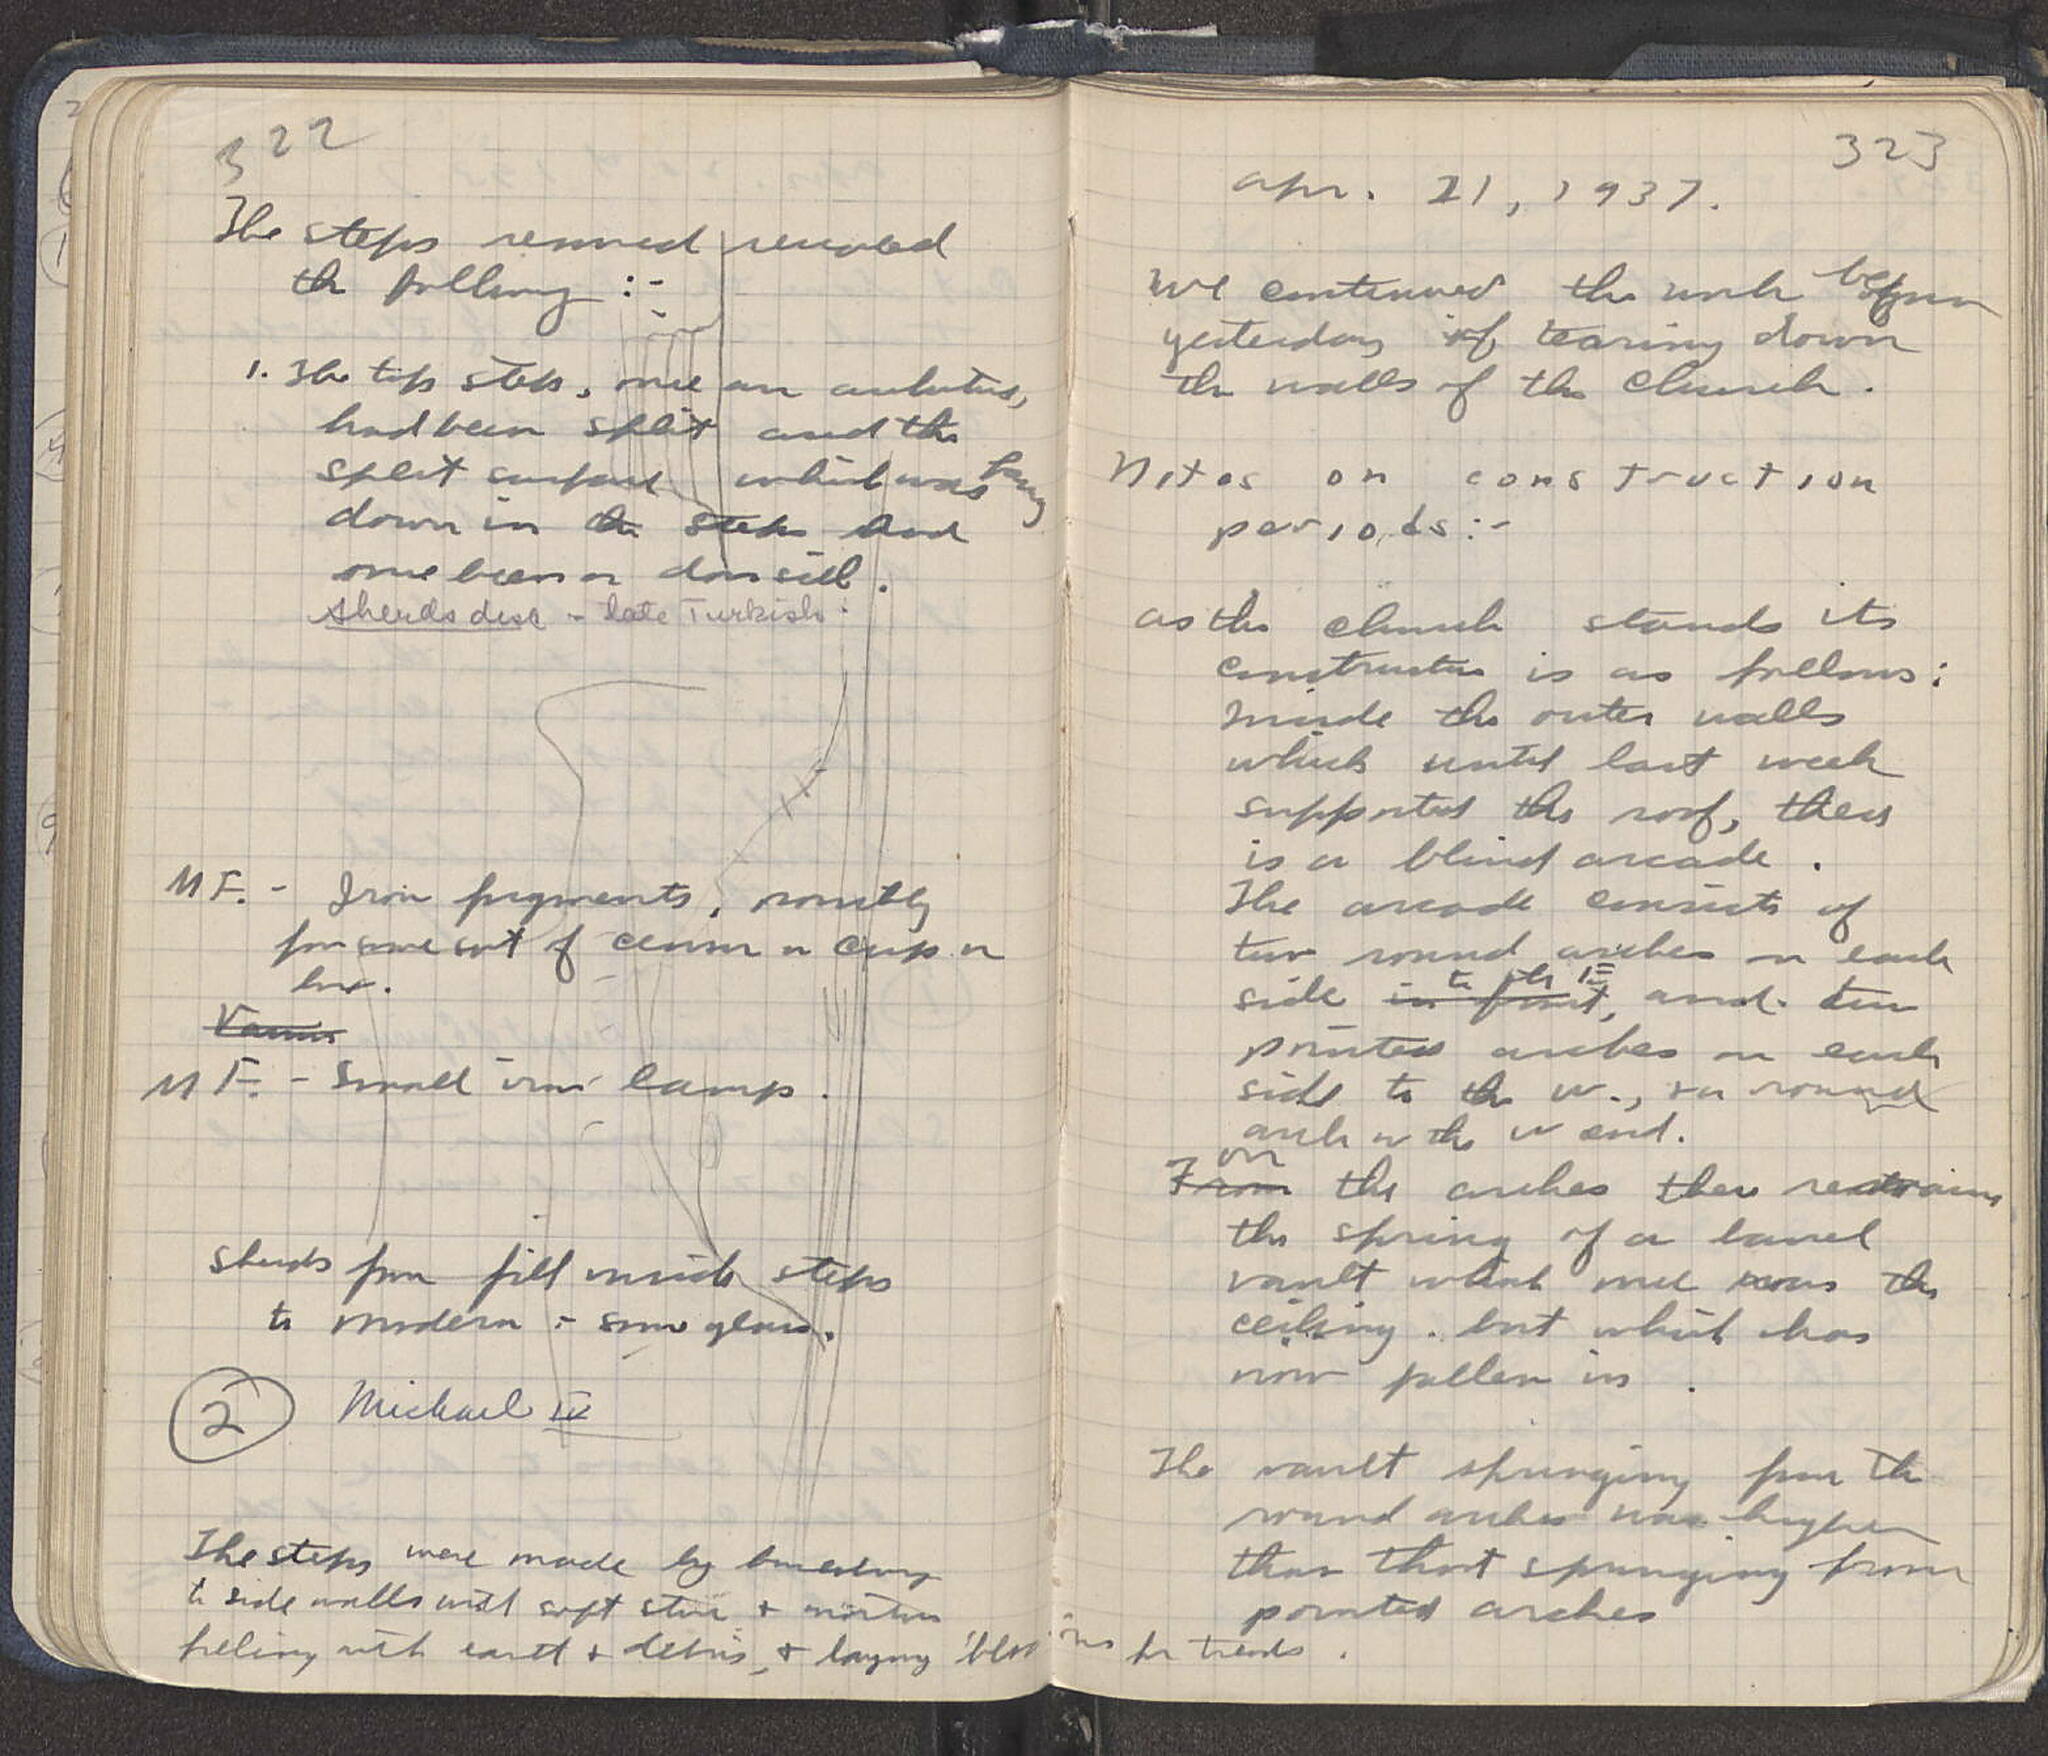 322
The steps removed revealed
the following :-
1. The top step, once an
had been split and the
split surface which was lying
down in the steps had
once been a door sill.
Sherds disc - late Turkish.
MF. - Iron fragments, possibly
from some sort of censer or cup or
box.
MF. - Small iron lamp.
Sherds from fill inside steps
to modern - some glass.
2 Michael IV
The steps were made by building
to side walls with soft stone & mortar
filling with earth & debris, & laying for treads.
323
Apr. 21, 1937.
We continued the work begun
yesterday of tearing down
the walls of the church.
Notes on construction
periods :-
As the church stands its
construction is as follows:
Inside the outer walls
which until last week
supported the roof, there
is a blind arcade.
The arcade consists of
two round arches on each
side in front to the E, and two
pointed arches on each
side to the W., & a round
arch in the W end.
From on the arches there remains
the spring of a barrel
vault which once was the
ceiling. but which has
now fallen in.
The vault springing from the
round arches was higher
than that springing from
pointed arches